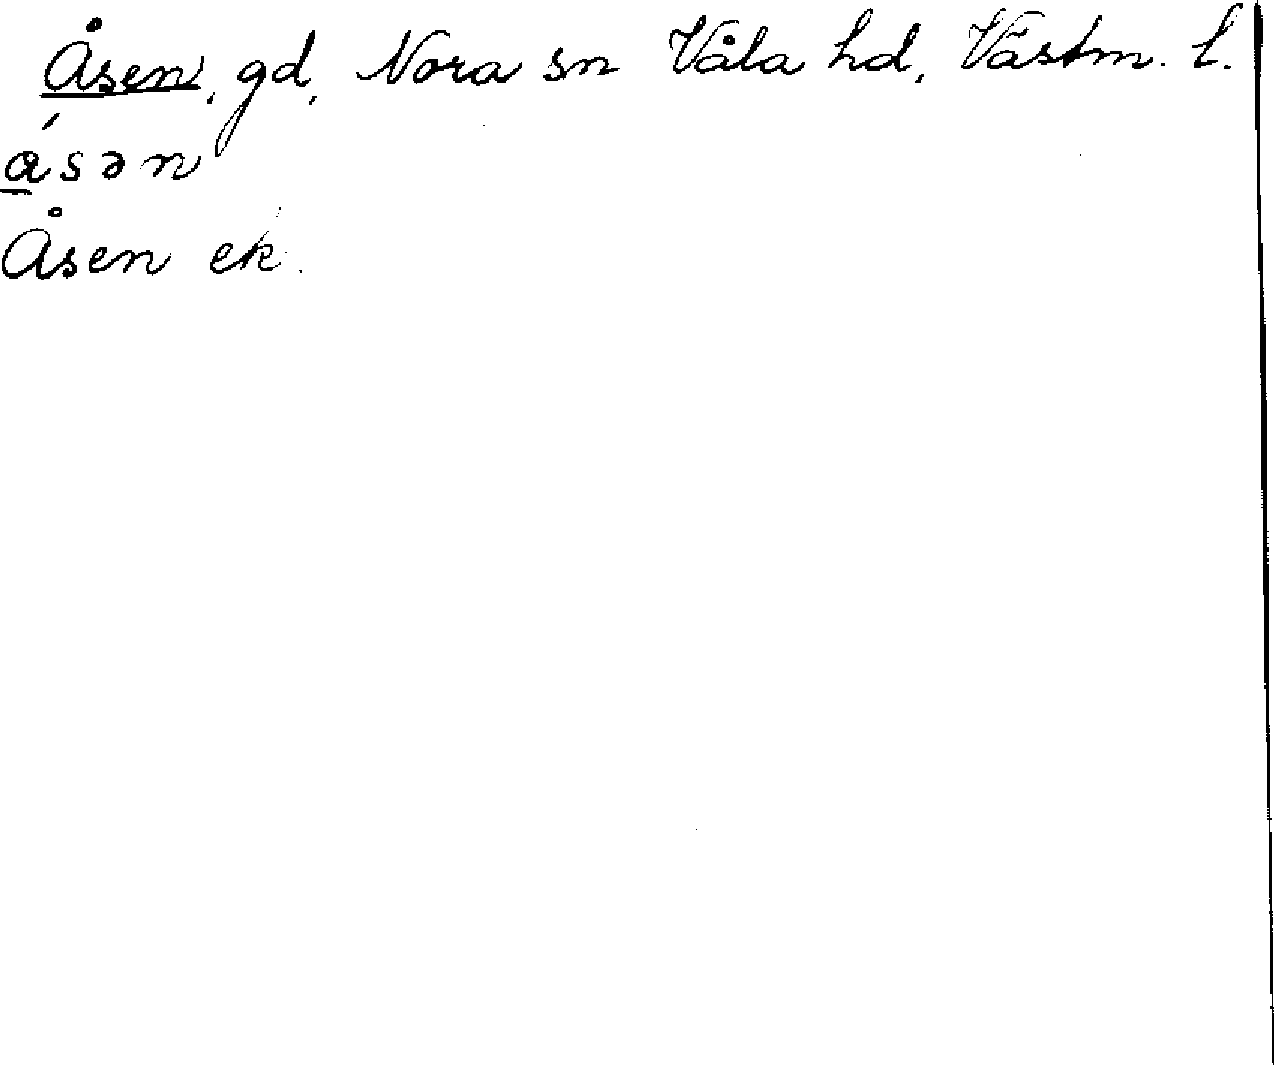 Åsen, gd, Nora sn Våla hd, Västm. l.
ásən
Åsen ek.